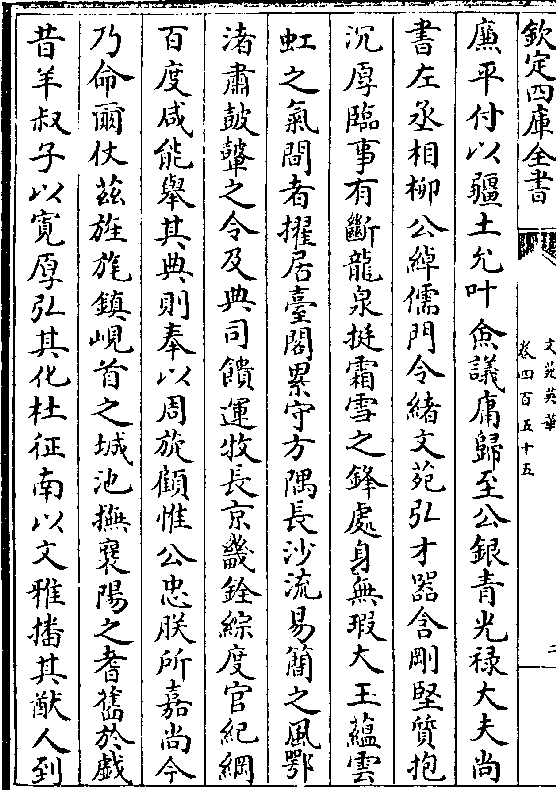 欽定四庫全書
文苑英華
卷四百五十五
二
廉平付以疆土允叶僉議庸歸至公銀青光禄大夫尚
書左丞相柳公綽儒門令緒文苑弘才器含剛堅質抱
沉厚臨事有斷龍泉挺霜雪之鋒處身無瑕大玉藴雲
虹之氣間者擢居臺閣累守方隅長沙流易簡之風鄂
渚肅鼓鼙之令及典司饋運牧長京畿銓綜度官紀綱
百度咸能舉其典則奉以周旋顧惟公忠朕所嘉尚今
乃命爾仗茲旌旄鎮峴首之城池撫襄陽之耆舊於戲
昔羊叔子以寛厚弘其化杜征南以文雅播其猷人到